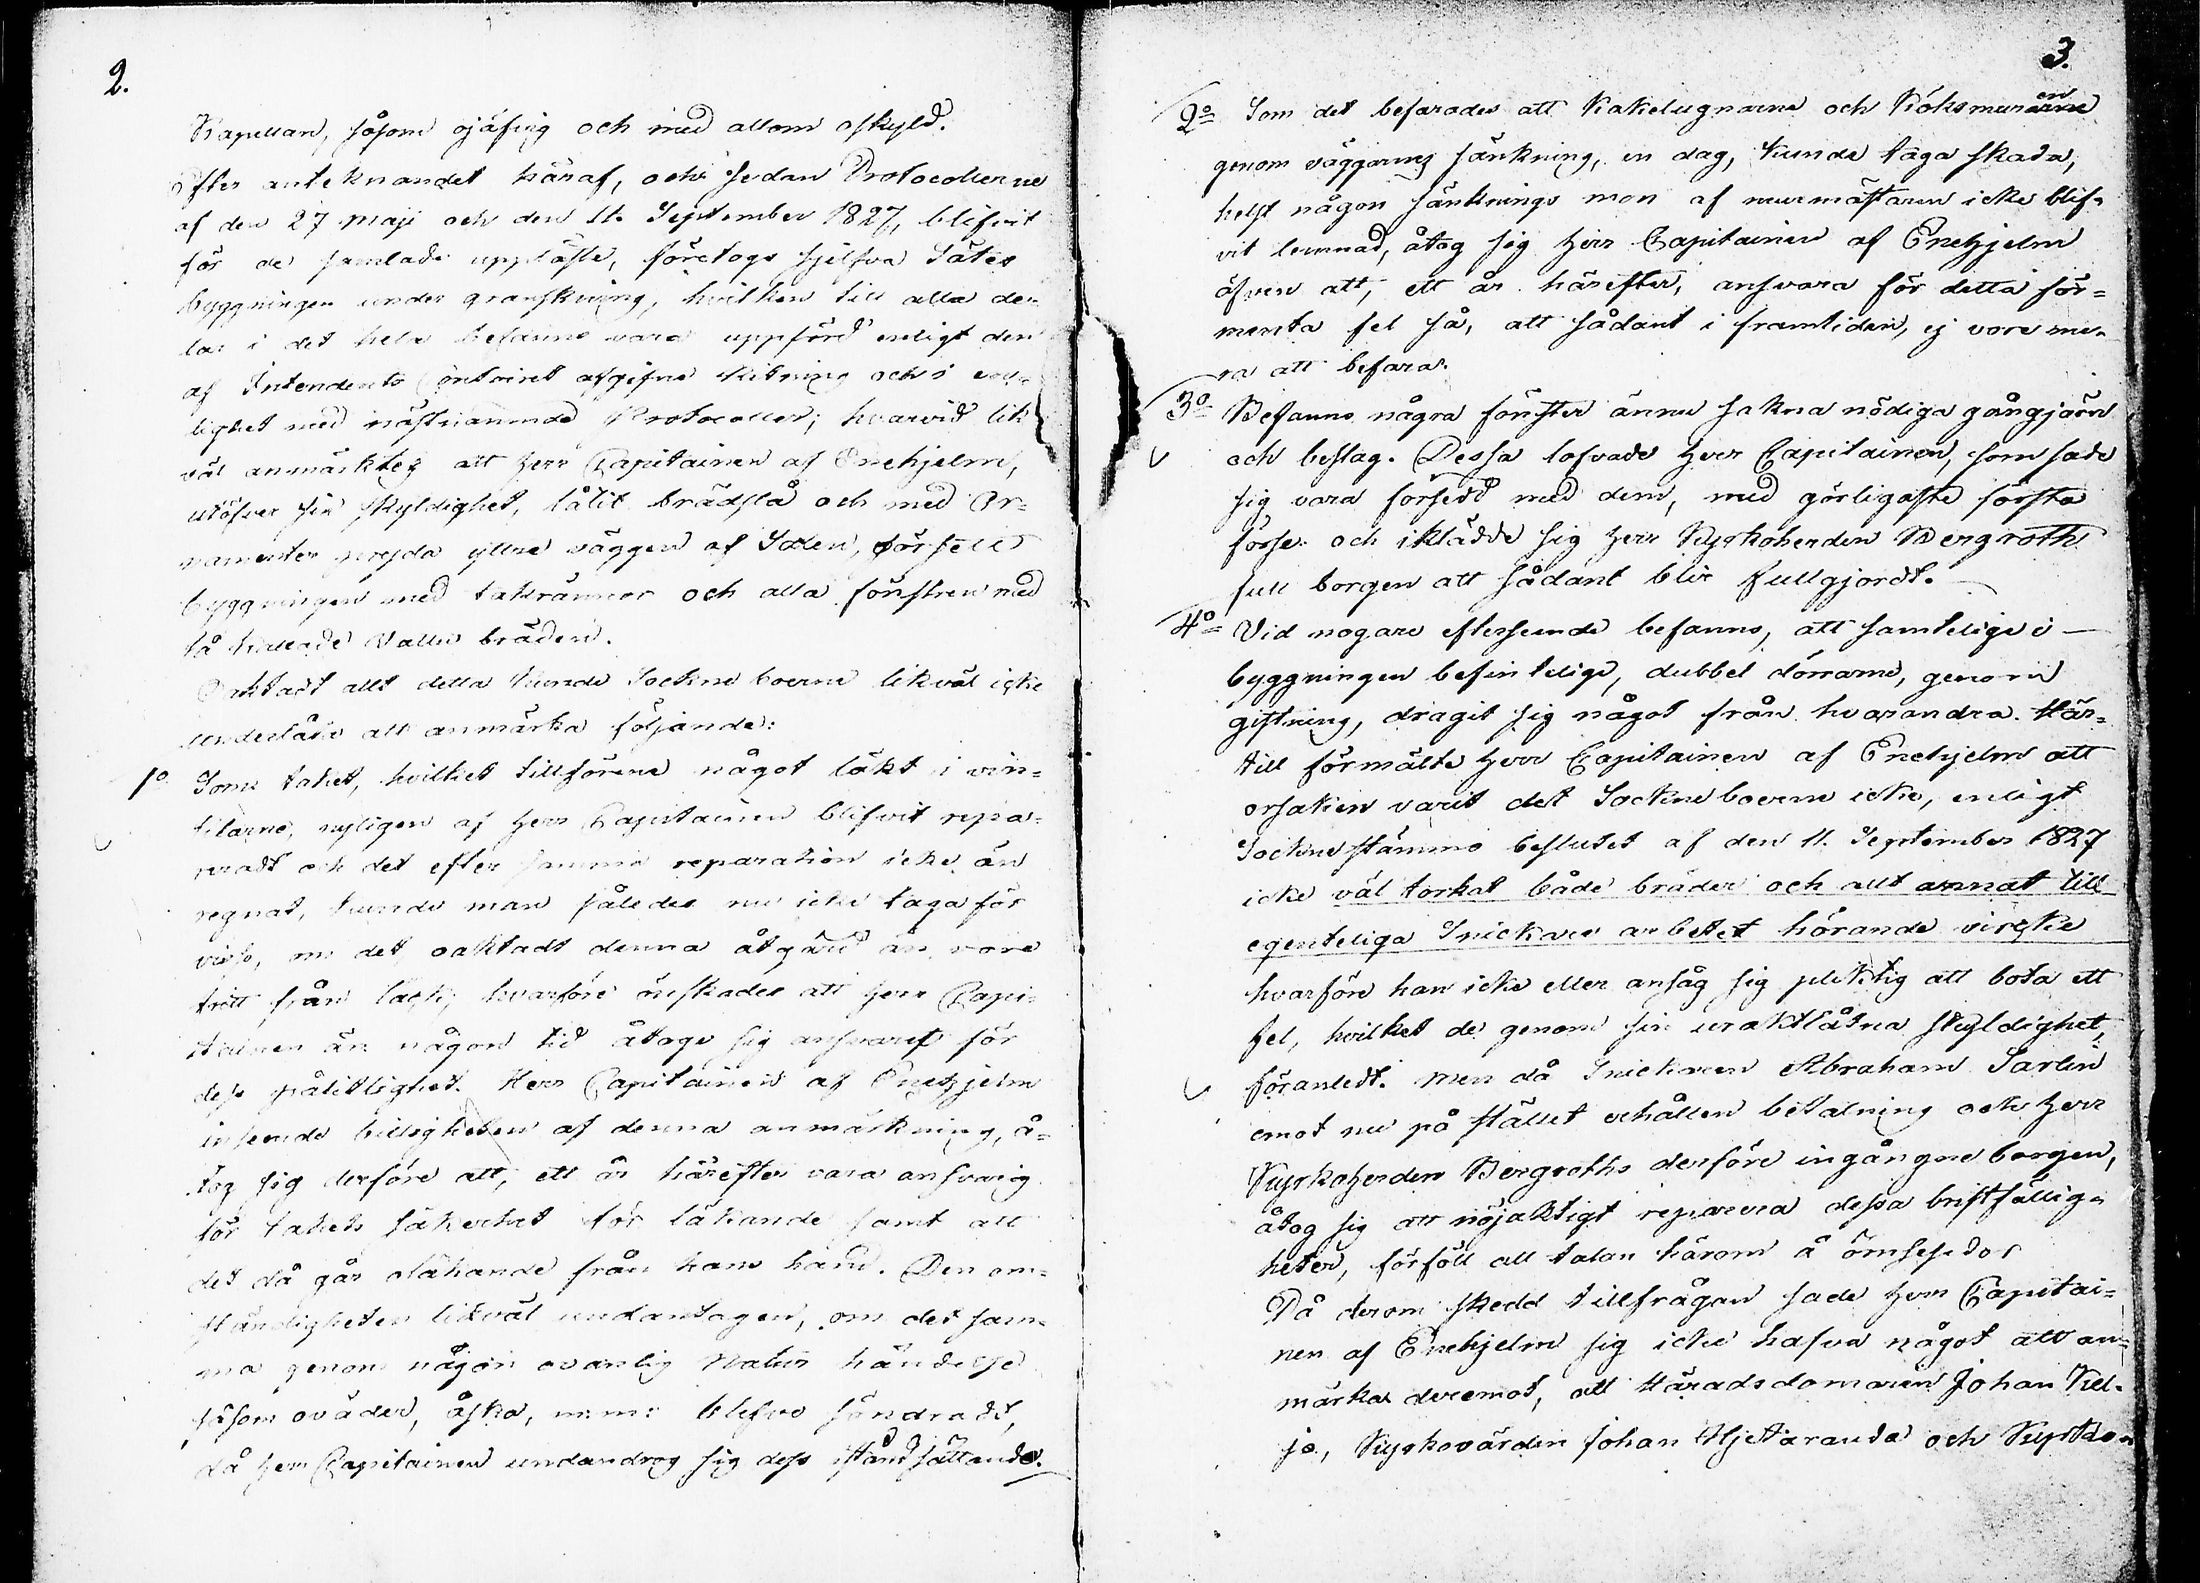 2.
Kapellan, såsom ojäfvig och med allom oskyld.
Efter anteknandet häraf, och sedan Protocollerne
af den 27 Maji och den 11. September 1827, blifvit
för de samlade uppläste, företogs sjelfva Sätes
byggningen under granskning, hvilken till alla de-
lar i det hela befanns vara uppförd enligt den
af Intendents Contoiret afgifne Ritning och i en-
lighet med nästnämnde Protocoller; hvarvid lik
väl anmärktes att Herr Capitainen af Enehjelm,
utöfver sin skyldighet, låtit brädslå och med Or-
namenter pryda yttre väggen af Salen, försett
byggningen med takrännor och alla fönstren med
så kallade Valln bräden.
Oaktadt allt detta kunde Sockne boerne likväl icke
underlåta att anmärka följande:
1o Som taket, hvilket tillförene något läkt i vin-
tilarne, nyligen af Herr Capitainen blifvit repa-
reradt och det efter samma reparation icke än
regnat, kunde man således nu icke taga för
visst, om det oaktadt denna åtgärd än vore
fritt från läck, hvarföre önskades att Herr Capi-
tainen än någon tid åtoge sig ansvaret för
dess pålitlighet. Herr Capitainen af Enehjelm
inseende billigheten af denna anmärkning, å-
tog sig derföre att, ett år härefter vara ansvarig
för takets säkerhet för läkande samt att
det då går oläkande från hans hand. Den om-
ständigheten likväl undantagen, om det sam-
ma genom någon ovanlig Natur händelse
såsom oväder, åska, m.m. blefve söndradt,
då Herr Capitainen undandrog sig dess iståndsättande.
3.
2o Som det befarades att Kakelugnarne och Köksmuren
genom väggarnes sänkning, en dag, kunde taga skada,
helst någon sänknings mon af murmästaren icke blif-
vit lemnad, åtog sig Herr Capitainen af Enehjelm
äfven att, ett år härefter, ansvara för detta för-
menta fel så, att sådant i framtiden, ej vore me-
ra att befara.
3o Befanns några fönster ännu sakna nödiga gångjärn
och beslag. Dessa lofvade Herr Capitainen, som sade
sig vara försedd med dem, med görligaste första
förse och iklädde sig Herr Kyrkoherden Bergroth
full borgen att sådant blir fullgjordt.
4o Vid nogare efterseende befanns, att samtelige i
byggningen befintelige, dubbel dörrarne, genom
gistning, dragit sig något från hvarandra. Här-
till förmälte Herr Capitainen af Enehjelm att
orsaken varit det Sockneboerne icke, enligt
Sockne stämmo beslutet af den 11. September 1827
icke väl torkat både bräder och allt annat till
egenteliga Snickare arbetet hörande virke
hvarföre han icke eller ansåg sig pliktig att bota ett
fel, hvilket de genom sin uraktlåtna skyldighet,
föranledt. Men då Snickaren Abraham Sarlin
emot nu på stället erhållen betalning och Herr
Kyrkoherden Bergroths derföre ingångne borgen,
åtog sig att nöjaktigt reparera dessa bristfällig-
heter, förföll all talan härom å ömsesidor
Då derom skedd tillfrågan sade Herr Capitai-
nen af Enehjelm sig icke hafva något att an-
märka deremot, att Häradsdomaren Johan Kil-
ja, Kyrkovärden Johan Hjetaranda och Kyrko-